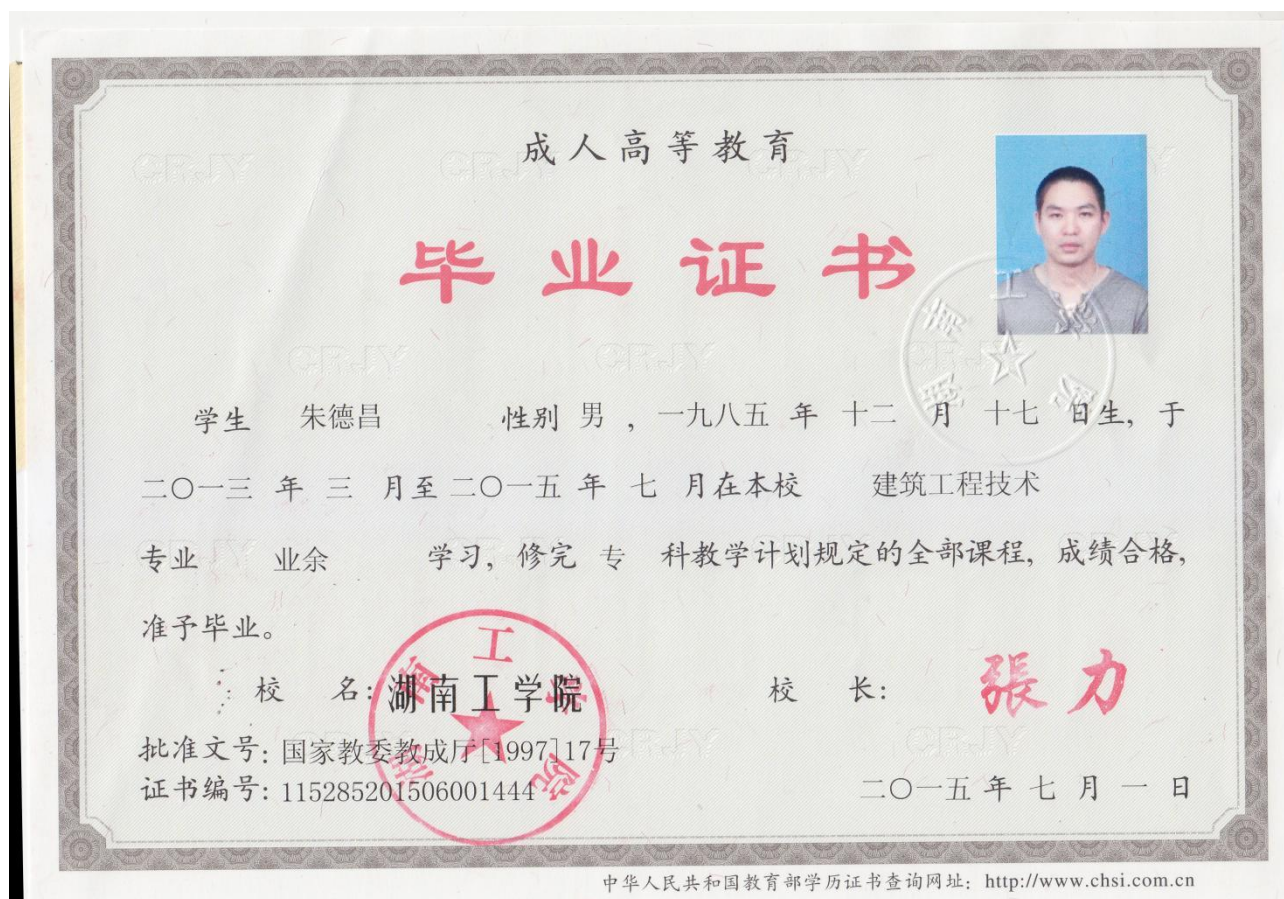 成人高等教育
毕业证书
学生 朱德昌 性别 男 , 一九八五 年 十二 月 十七 日生, 于
二〇一三 年 三 月至 二〇一五 年 七 月在本校 建筑工程技术
专业 业余 学习, 修完 专 科教学计划规定的全部课程, 成绩合格,
准予毕业。
校 名: 湖南工学院 校 长: 張力
批准文号: 国家教委教成厅[1997]17号
证书编号: 115285201506001444
二〇一五 年 七 月 一 日
湖南工学院
中华人民共和国教育部学历证书查询网址: http://www.chsi.com.cn